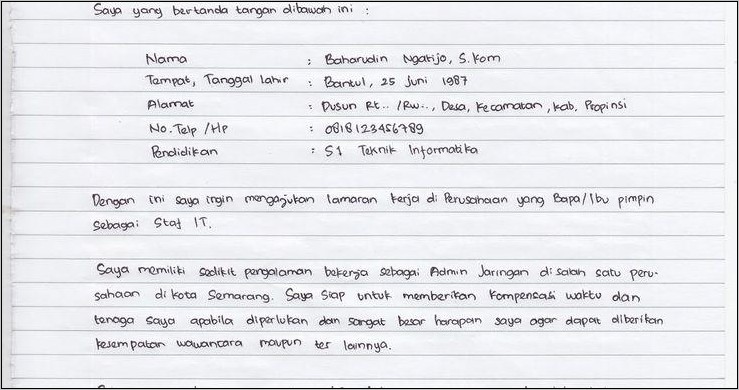 Saya yang bertanda tangan dibawah ini :
Nama : Baharudin Ngatijo, S.Kom
Tempat, Tanggal lahir : Bantul, 25 Juni 1987
Alamat : Dusun Rt.. /Rw.., Desa, Kecamatan, Kab, Propinsi
No. Telp /Hp : 0818123456789
Pendidikan : S1 Teknik Informatika
Dengan ini saya ingin mengajukan lamaran kerja di Perusahaan yang Bapa/Ibu pimpin
sebagai Staf IT.
Saya memiliki sedikit pengalaman bekerja sebagai Admin Jaringan di salah satu peru-
sahaan di kota Semarang. Saya siap untuk memberikan kompensasi waktu dan
tenaga saya apabila diperlukan dan sangat besar harapan saya agar dapat diberikan
kesempatan wawancara maupun tes lainnya.